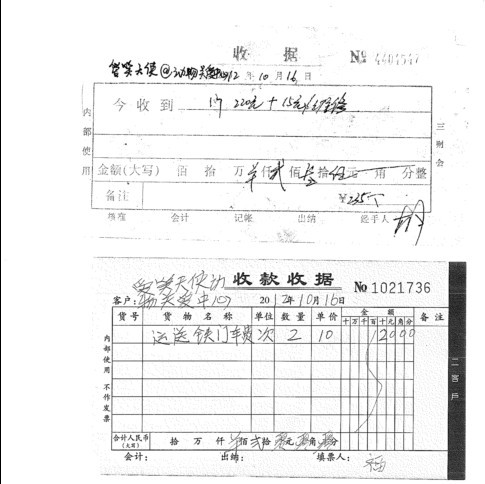 收 据 № 4401547
爱笑天使@动物关爱中心 2012 年 10 月 16 日
今 收 到 220元 + 15元
金额(大写) 佰 拾 万 仟 贰 佰 叁 拾 伍 元 角 分整
备注 ¥235
核准 会计 记帐 出纳 经手人
内部使用
三财会
收款收据 No 1021736
爱笑天使动
客户: 物关爱中心 2012年10月16日
货号 货物名称 单位 数量 单价 金额 备注
十 万 千 百 十 元 角 分
运送铁门车费 次 2 10 2000
合计人民币(大写) 拾 万 仟 佰 贰 拾 零 元 零 角 零 分
会计: 出纳: 填票人:
内部使用 不作发票
二客户